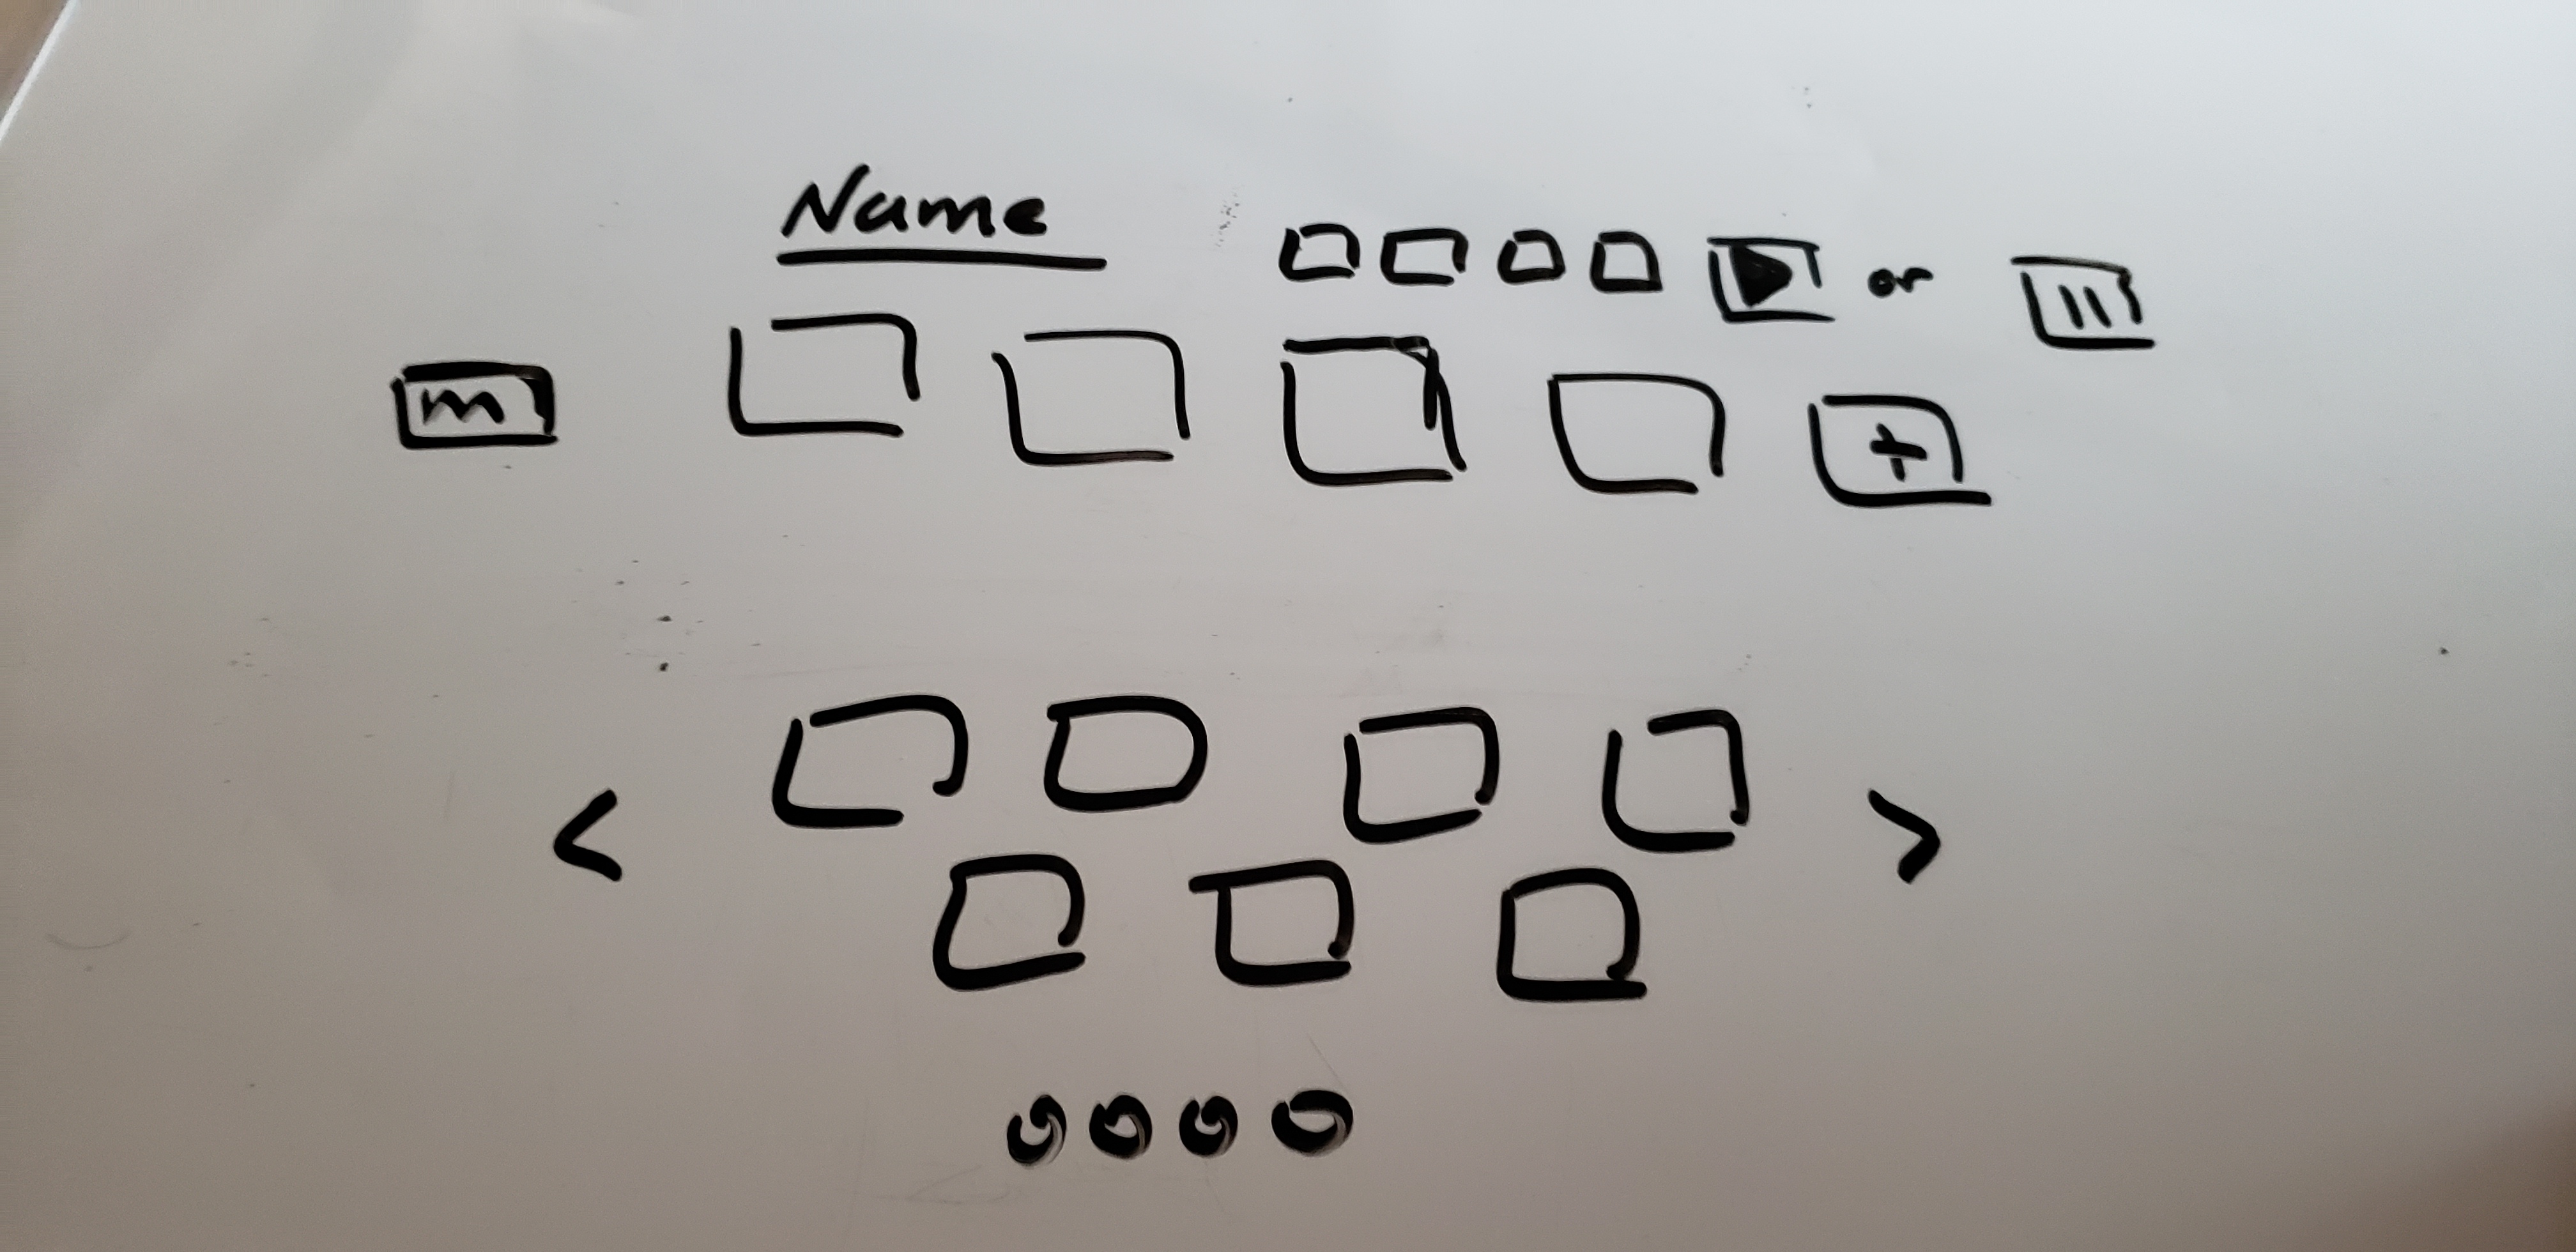 Name
or
m
+
< >